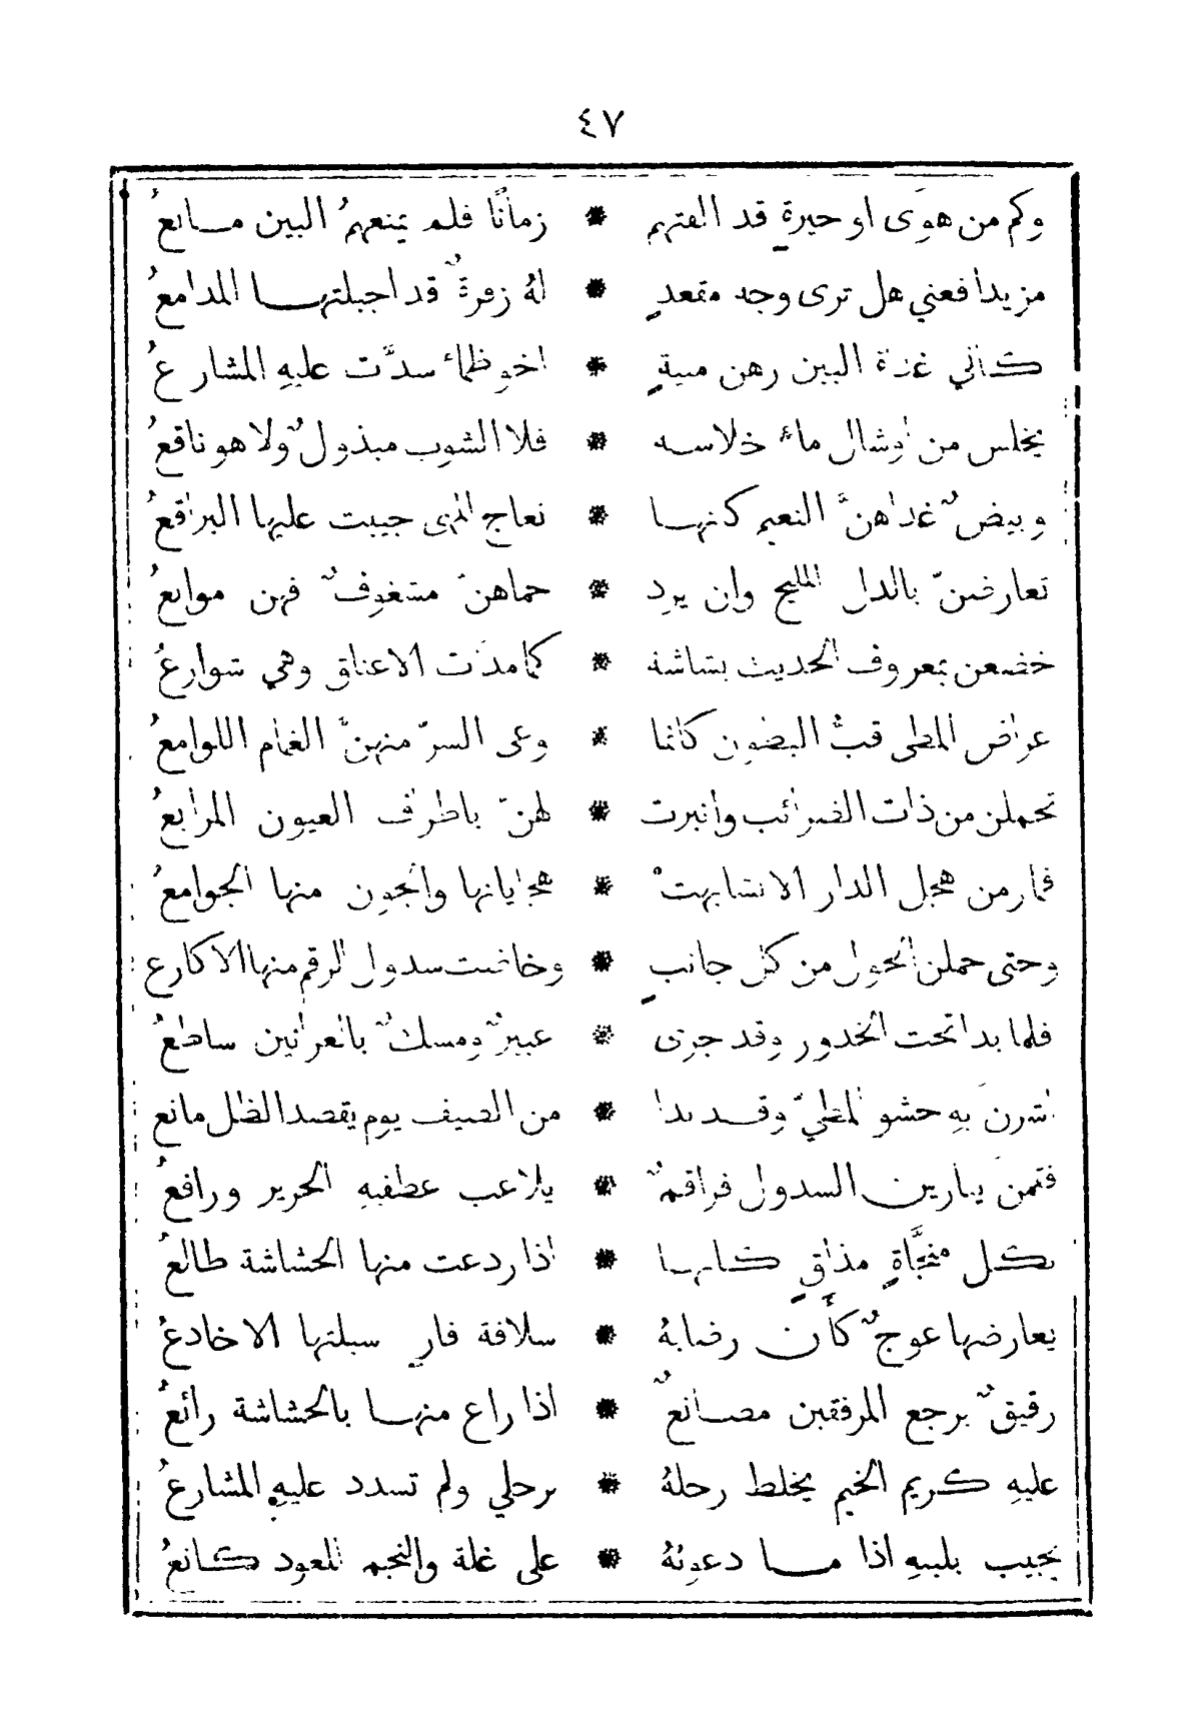 ٤٧
وكم من هوًى او حيرةٍ قد الفتهم * زمانًا فلم يمنعهمُ البين مانعُ
مزيدافعني هل ترى وجد مقعدٍ * لهُ زفرةٌ قد اجبلتها المدامعُ
كأني غداة البين رهن منيةٍ * اخو ظماء سدَّت عليهِ المشارعُ
يخلس من اوشال ماء خلاسه * فلا الشوب مبذولٌ ولا هو ناقعُ
وبيضٌ غداهنَّ النعيم كنها * نعاج المهى جيبت عليها البراقعُ
تعارضنّ بالدل المليح وان يرد * حماهنّ مشغوفٌ فهن موانعُ
خضعن بمعروف الحديث بشاشة * كما مدَّت الاعناق وهي شوارعُ
عراض المطى قبُّ البطون كانما * وعى السرّ منهنَّ الغمام اللوامعُ
تحملن من ذات الضرائب وانبرت * لهنّ باطراف العيون المرابعُ
فمار من هجل الدار الا تشابهتْ * هجايانها والجون منها الجوامعُ
وحتى حملن الحول من كل جانبٍ * وخاضت سدول الرقم منها الاكارع
فلما بدا تحت الخدور وقد جرى * عبيرٌ ومسكٌ بالعرانين ساطعُ
اشرن بهِ حشو المطيّ وقد بدا * من الصيف يوم يقصد الظل مانع
فتمن يبارين السدول فراقمٌ * يلاعب عطفيهِ الحرير ورافعُ
بكل منجَّاةٍ مذاقٍ كانها * اذا ردعت منها الحشاشة طالعُ
يعارضها عوجٌ كأن رضابهُ * سلافة فارٍ سبلتها الاخادعُ
رقيقٌ برجع المرفقين مصانعٌ * اذا راع منها بالحشاشة رائعُ
عليهِ كريم الخيم يخلط رحلهُ * برحلي ولم تسدد عليهِ المشارعُ
يجيب بلبيهِ اذا ما دعوتهُ * على غلة والنجم للعود كانعُ